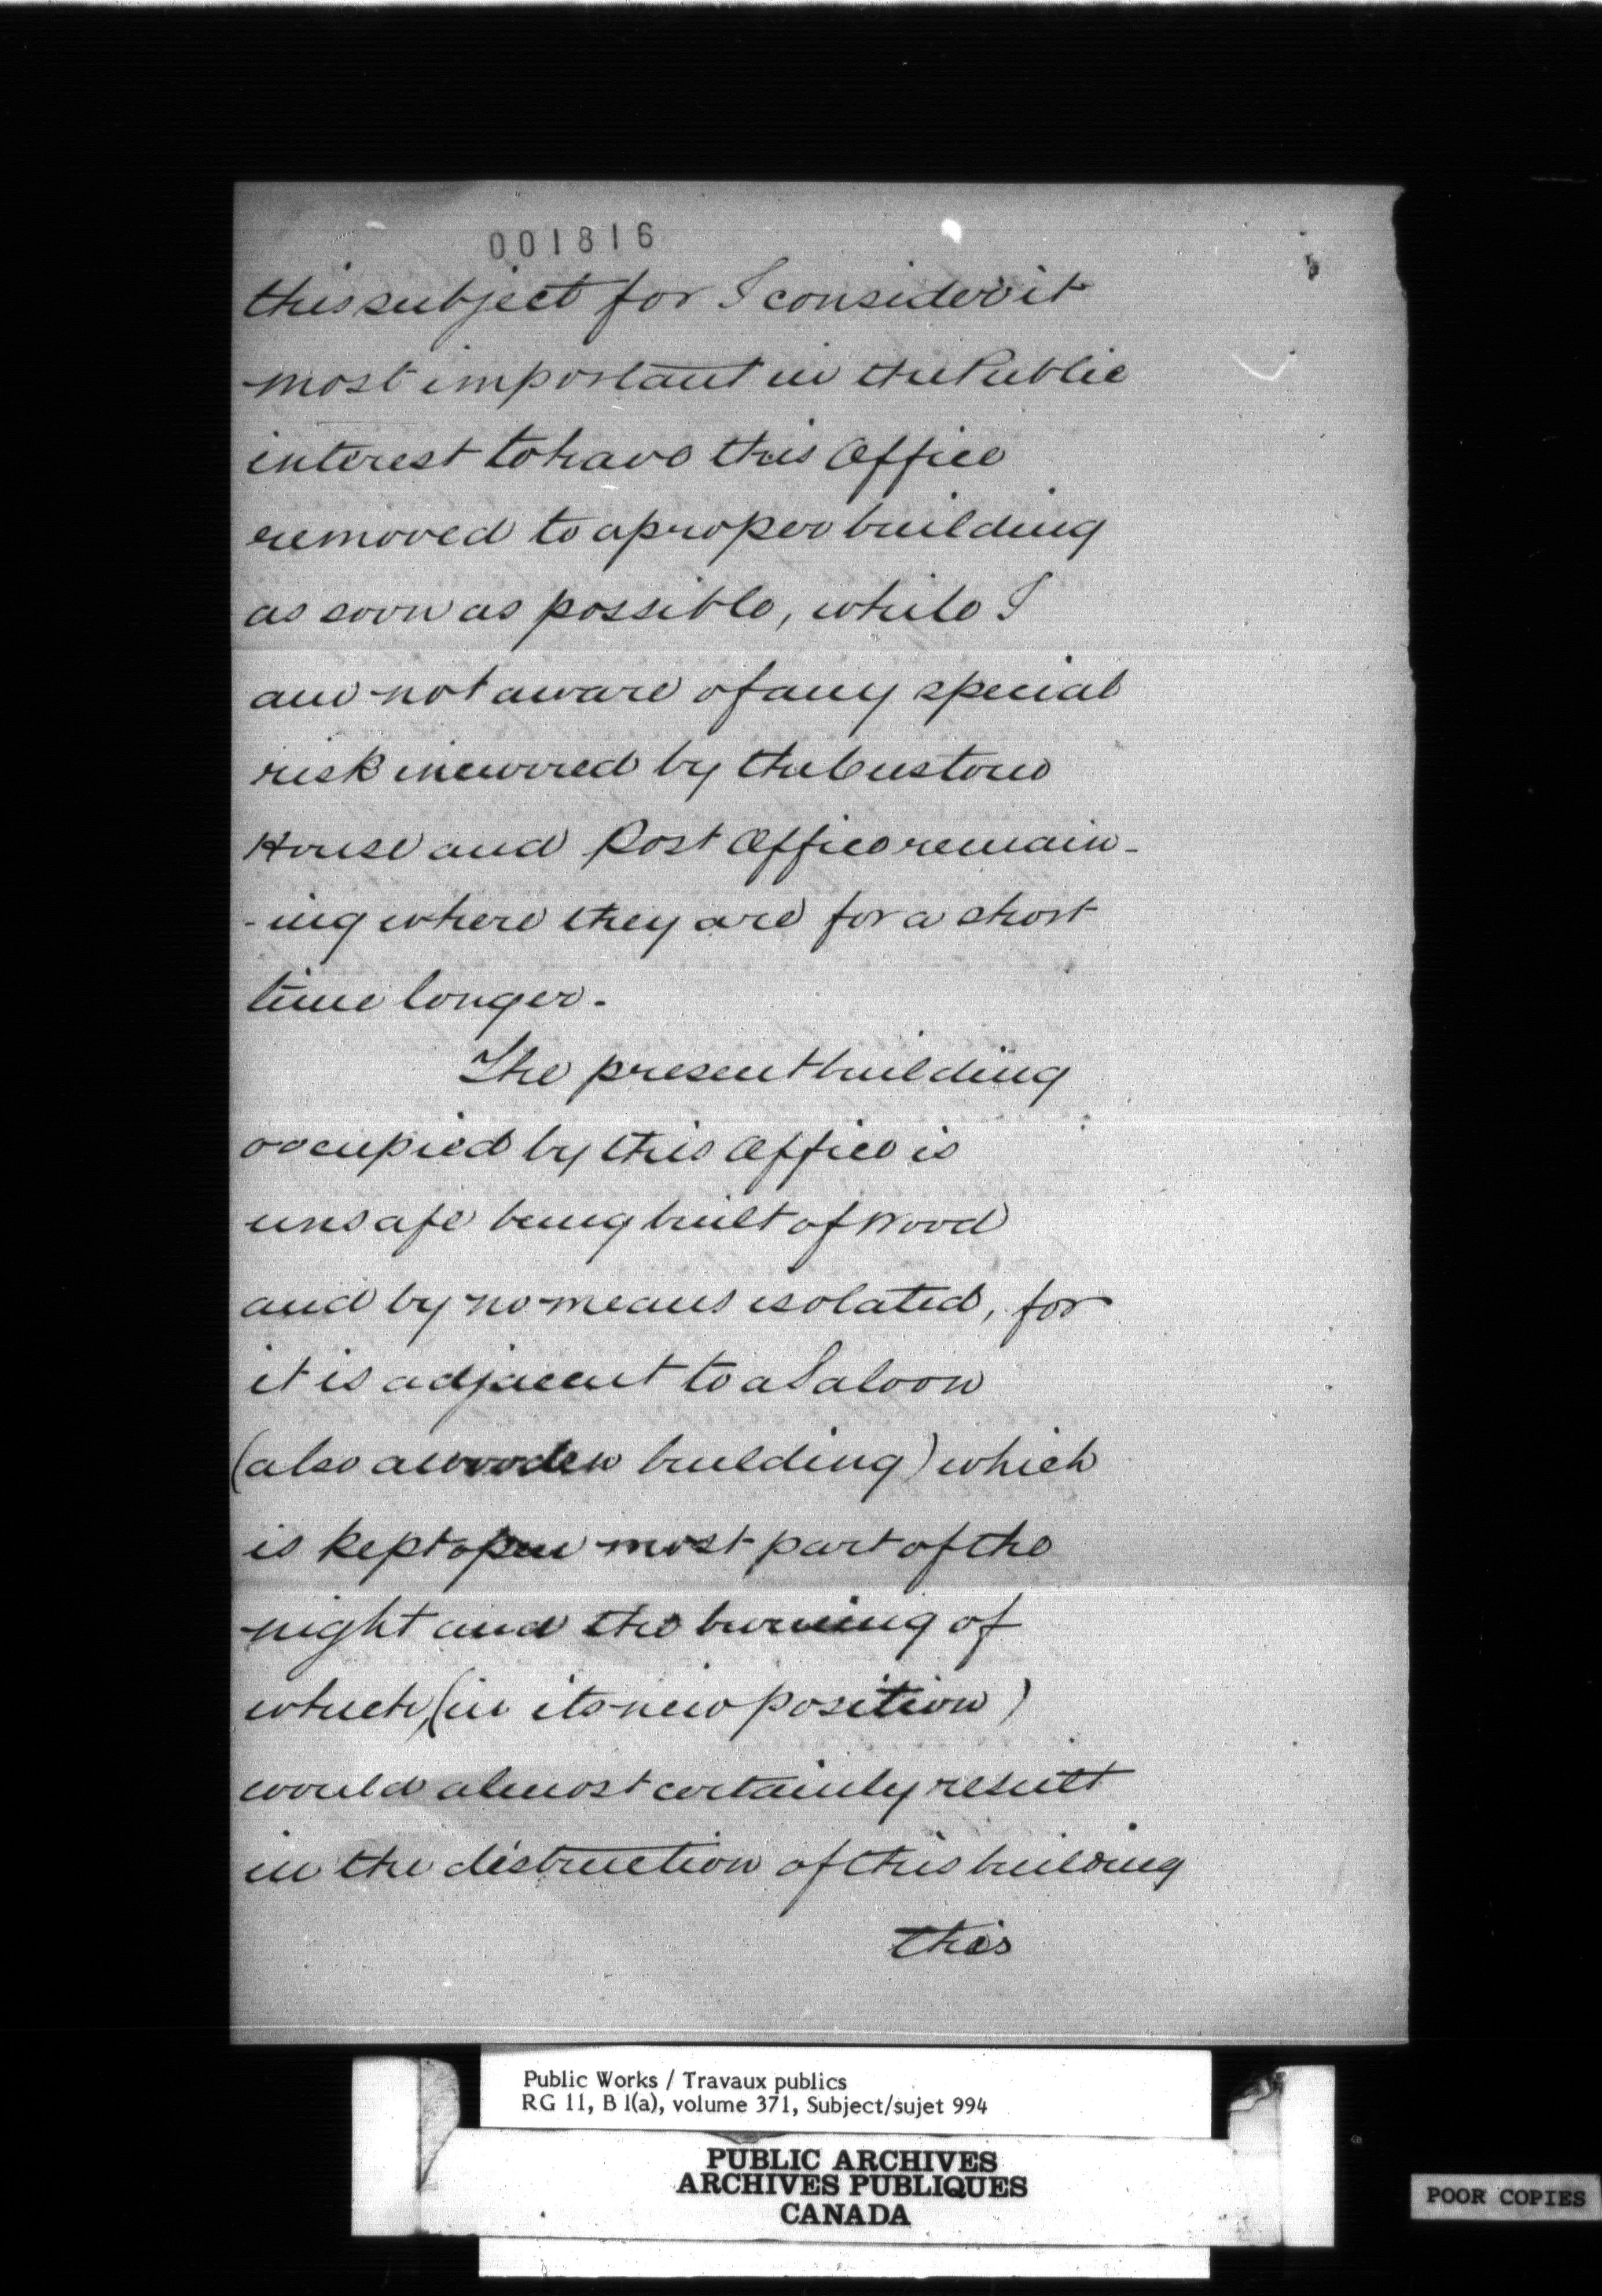 001816
this subject for I consider it
most important in the Public
interest to have this Office
removed to a proper building
as soon as possible, while I
am not aware of any special
risk incurred by the Custom
House and Post Office remain-
-ing where they are for a short
time longer.
The present building
occupied by this Office is
unsafe being built of wood
and by no means isolated, for
it is adjacent to a Saloon
(also a wooden building) which
is kept open most part of the
night and the burning of
which, (in its new position)
would almost certainly result
in the distruction of this building
this
Public Works / Travaux publics
RG 11, B 1(a), volume 371, Subject/sujet 994
PUBLIC ARCHIVES
ARCHIVES PUBLIQUES
CANADA
POOR COPIES